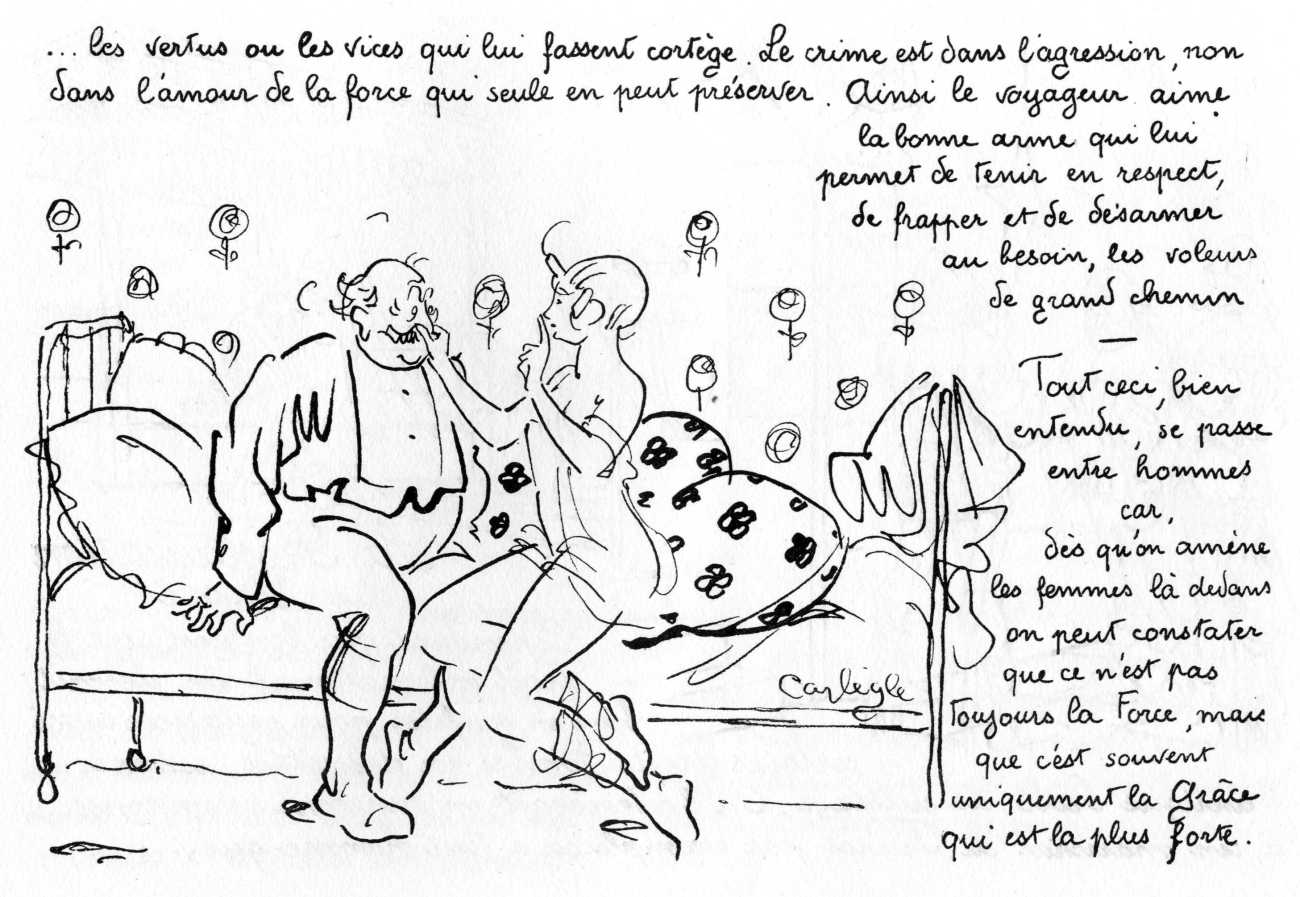 ... les vertus ou les vices qui lui fassent cortège. Le crime est dans l'agression, non
dans l'amour de la force qui seule en peut préserver. Ainsi le voyageur aime
la bonne arme qui lui
permet de tenir en respect,
de frapper et de désarmer
au besoin, les voleurs
de grand chemin
—
Tout ceci, bien
entendu, se passe
entre hommes
car,
dès qu'on amène
les femmes là dedans
on peut constater
que ce n'est pas
toujours la Force, mais
que c'est souvent
uniquement la Grâce
qui est la plus forte.
Carlègle